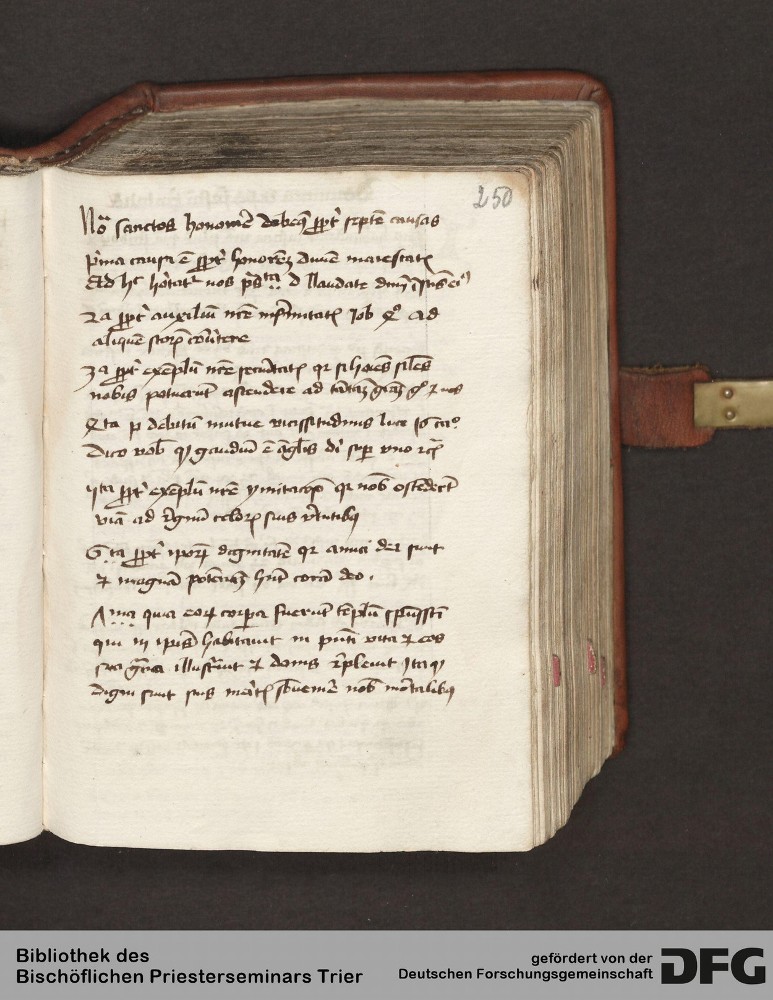 250
No sanctos honorare debemus propter septem causas
prima causa e propter honorem divine maiestatis
Ad hoc hortatur nos ps laudate dnm in sanctis eius
2a propter auxilium nre infirmitatis Iob ad
aliquem sctorum convertere
3a propter exemplum nre securitatis qr si homines similes
nobis potuerunt ascendere ad tantam gram et nos
4ta p debitum mutue vicissitudinis luce
Dico vob gaudium e anglis dei super uno
5ta propter exemplum nre ymitacionis qr nob ostenderunt
viam ad regnum celorum suis virtutibus
6ta propter ipsorum dignitatem qr amici dei sunt
et magnam potenciam hnt coram deo.
7ma quia eorum corpora fuerunt templum spussti
qui in ipsis habitavit in pnti vita et eos
sua gra illustravit et donis replevit Itaque
digni sunt suis meritis subvenire nob mortalibus
Bibliothek des
Bischöflichen Priesterseminars Trier
gefördert von der
Deutschen Forschungsgemeinschaft
DFG